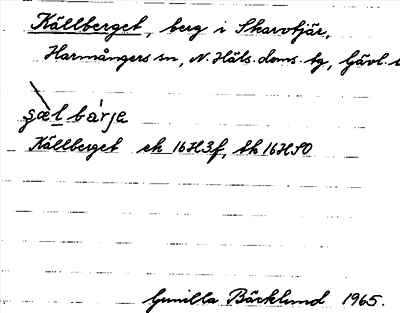 Källberget, berg i Skarvtjär,
Harmångers sn, N. Häls. doms. tg, Gävl.
gæl bárje
Källberget ek 16H3f, tk 16HSO
Gunilla Bäcklund 1965.